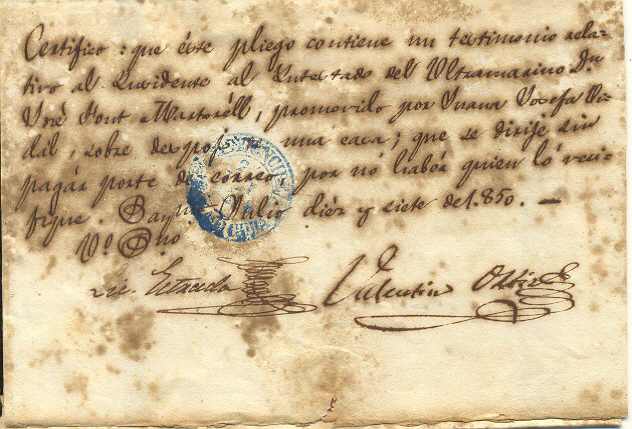 Certifico: que éste pliego contiene un testimonio rela-
tivo al Yncidente al Yntestado del Ultramarino Dn.
José Font y Martorell, promovido por Juana Josefa Vi-
dal, sobre despojo de una casa; que se dirije sin
pagár porte de correo por nó habér quien ló veri-
fique. Julio diéz y siete de 1.850. —
Vo. Bno.
Valentin